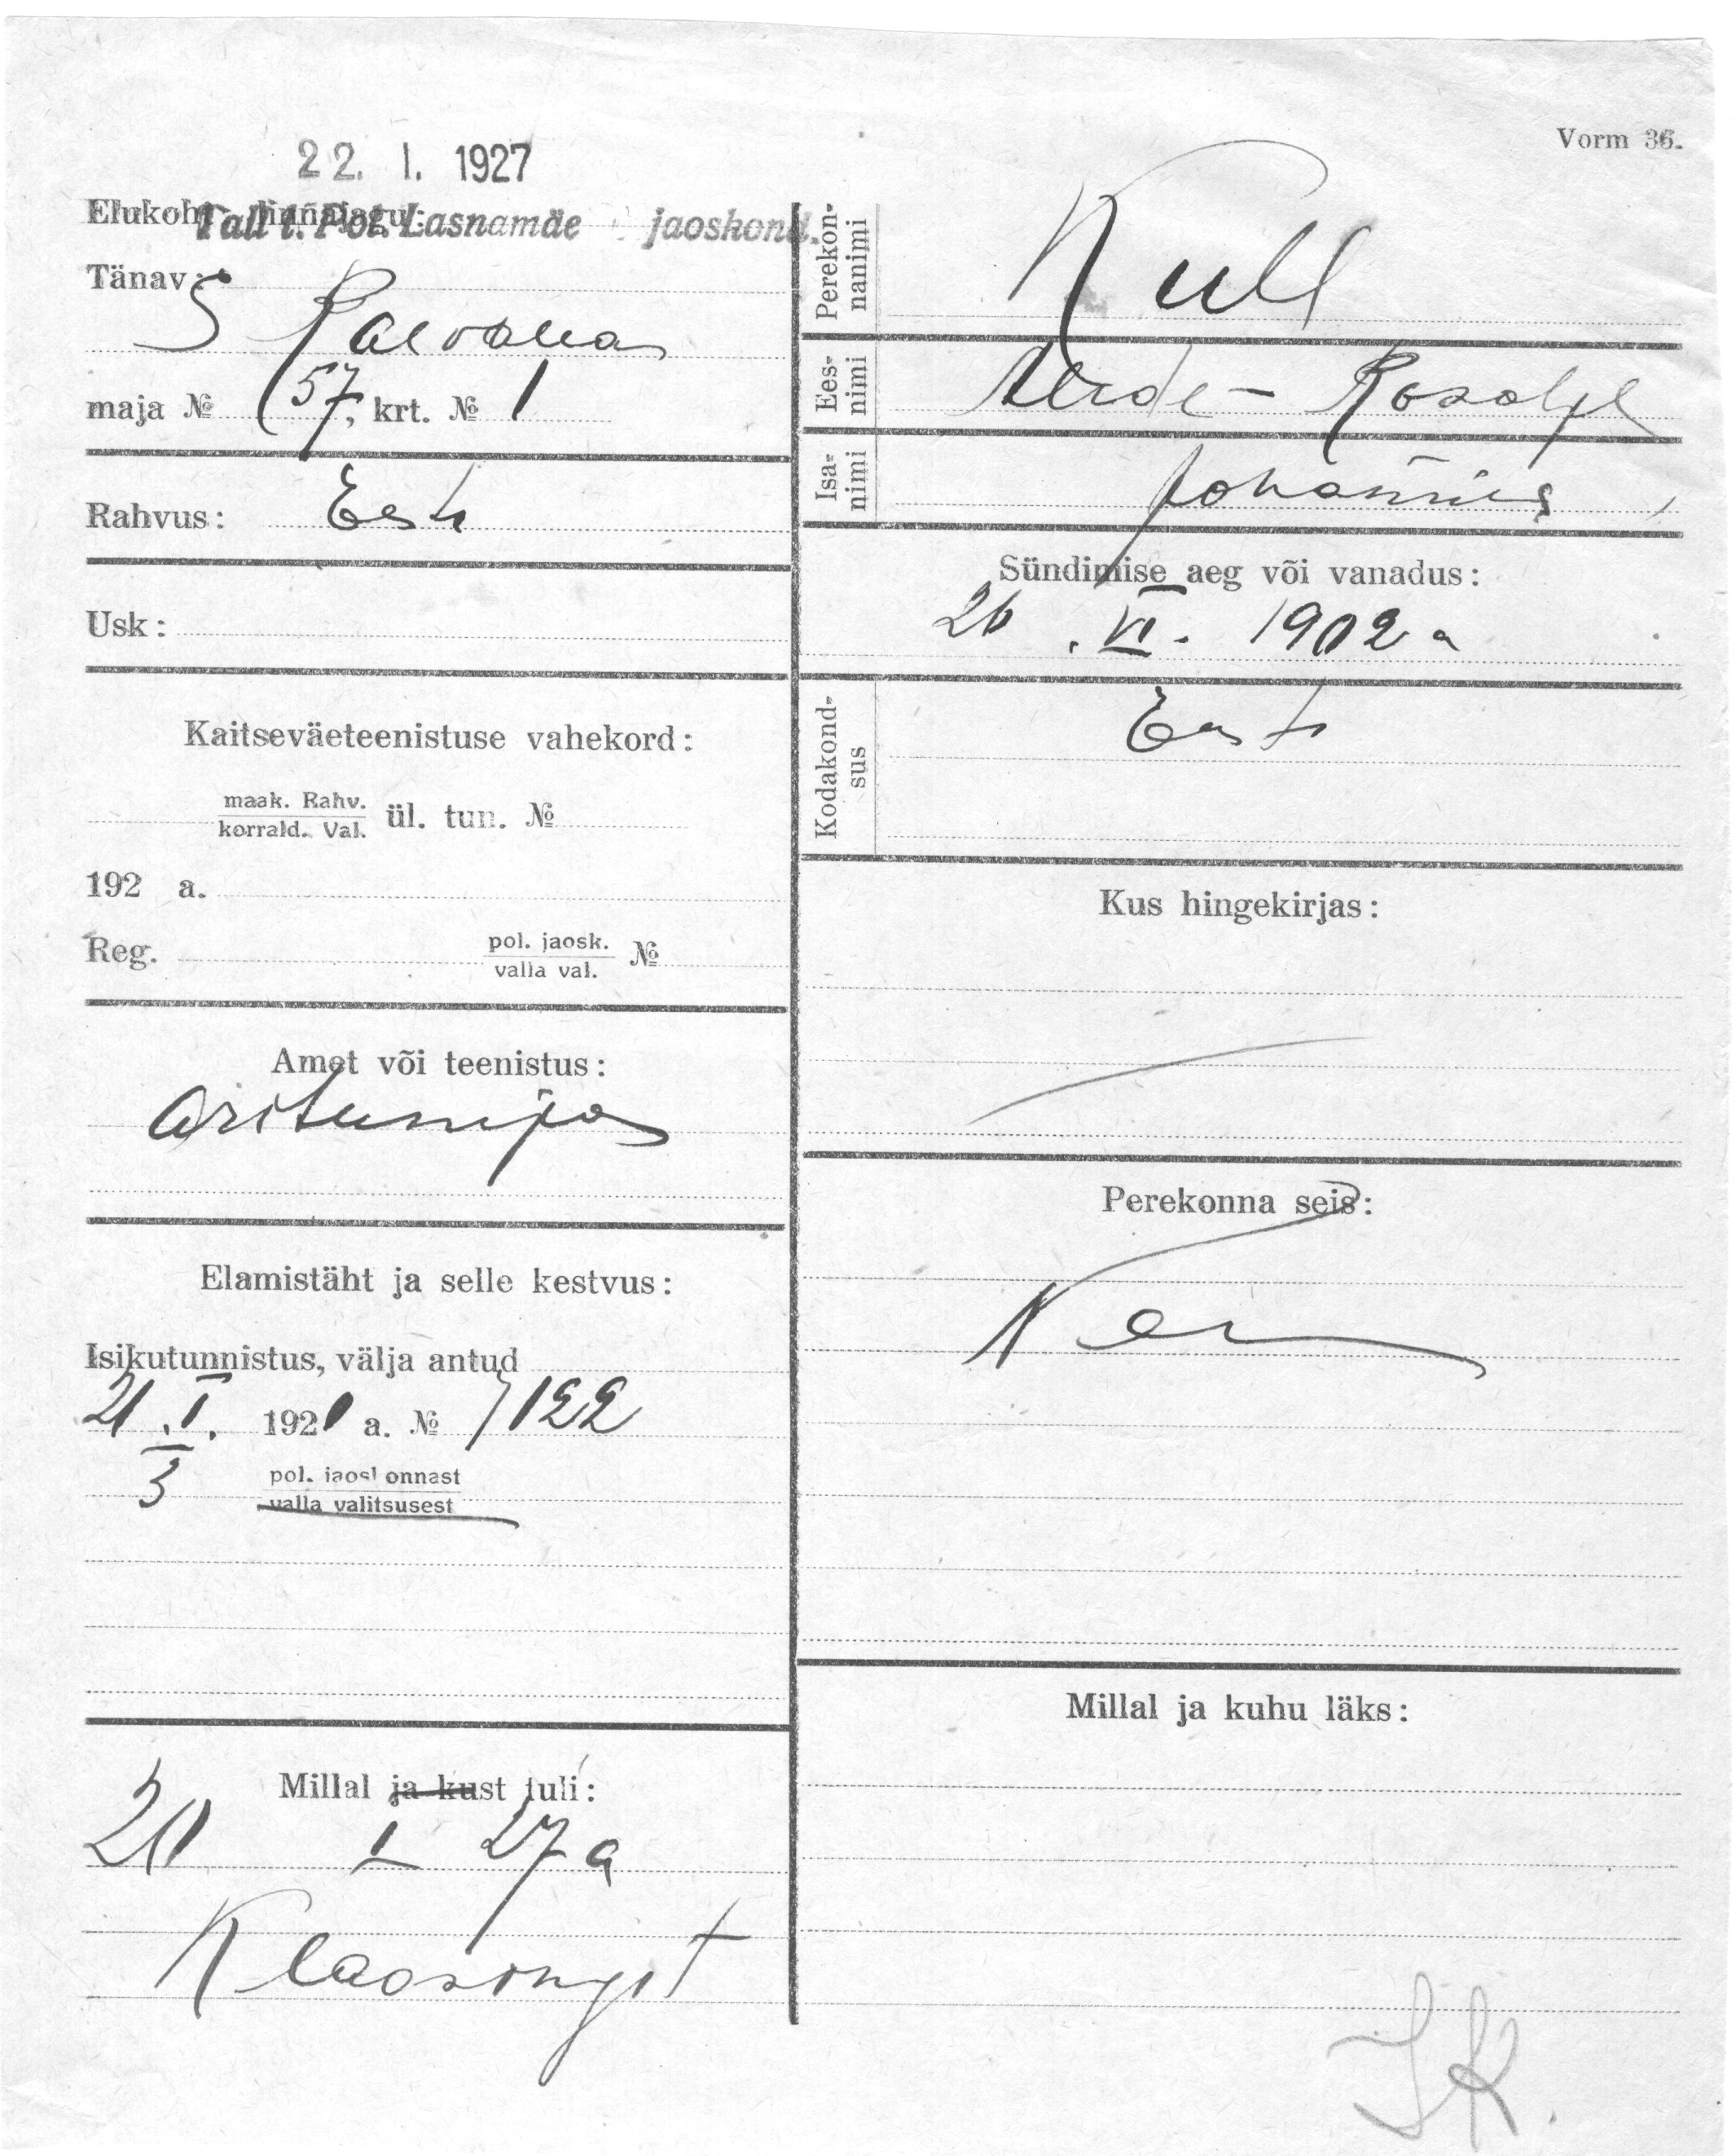 Vorm 36.
22. I. 1927
Elukoht linnajagu:
Tall l. Pol. Lasnamäe jaoskond.
Tänav:
S
maja № 57, krt. № 1
Rahvus: Eesti
Usk:
Kaitseväeteenistuse vahekord:
maak. Rahv.
korrald. Val. ül. tun. №
192 a.
Reg. pol. jaosk.
valla val. №
Amet või teenistus:
äriteenija
Elamistäht ja selle kestvus:
Isikutunnistus, välja antud
21. I. 1921 a. № 7122
3 pol. jaoskonnast
valla valitsusest
Millal ja kust tuli:
20 I 27 a
Perekonnanimi
Kull
Eesnimi
Rosalje
Isanimi
Johannes
Sündimise aeg või vanadus:
26. VI. 1902 a
Kodakondsus
Eesti
Kus hingekirjas:
Perekonna seis:
Millal ja kuhu läks:
JK.